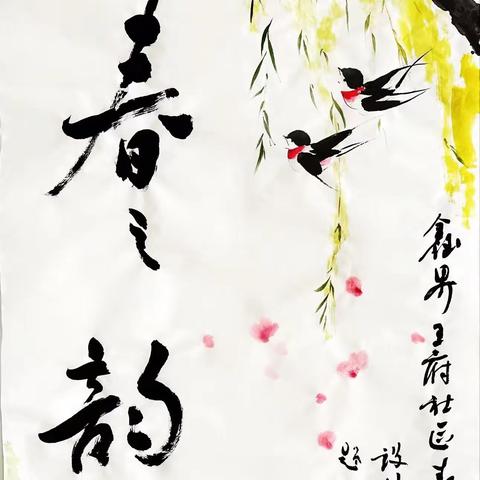 春之韵
鑫界王府社区春
设计
题